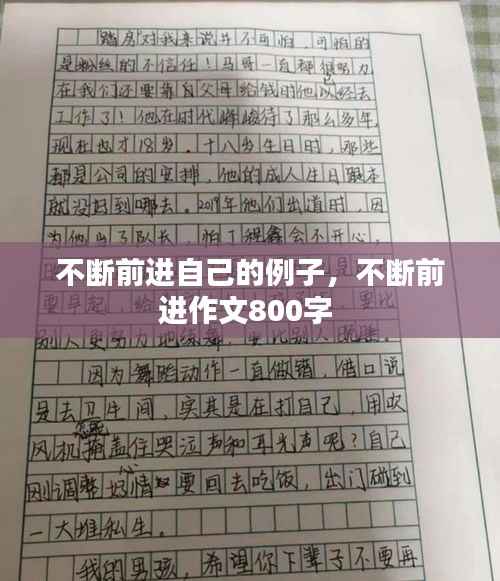 踏房对我来说并不可怕，可怕的
是粉丝的不信任！马哥一直都很努力
在我们还要靠自父母给钱时他以经去
工作了！他在时代峰峻待了那么多年，
现在也才18岁。十八岁生日时，那些
都是公司的安排，他的成人生日跟本
就没好到哪去。2019年他们出道时，因
为他当了队长，怕丁程鑫会不开心，
不断前进自己的例子，不断前
进作文800字
要早起，给
别人更努力地练舞，要比别人
因为舞蹈动作一直做错，借口说
是去卫生间，实其是在打自己，用吹
风机掩盖住哭泣声和耳光声呢？自己
刚调整好心情要回去吃饭，出门碰到
一大堆私生。
我的男孩，希望你下辈子不要再